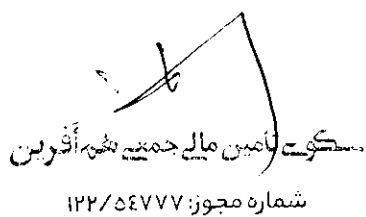 سکوی تامین مالی جمعی هم آفرین
شماره مجوز: ۱۲۲/۵۴۷۷۷